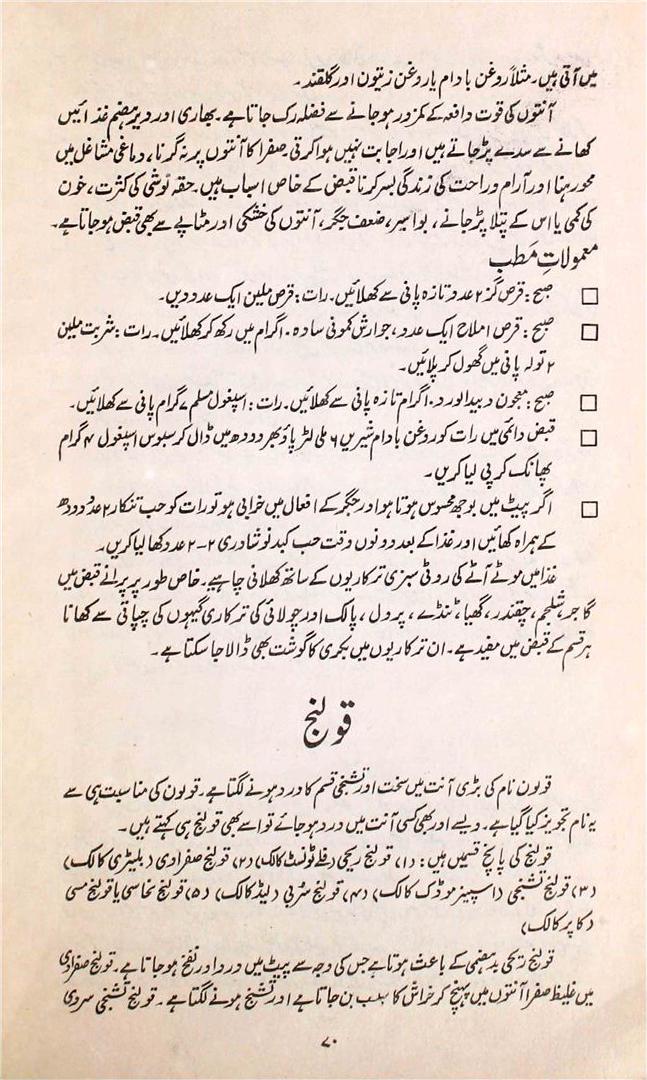 میں آتی ہیں۔ مثلاً روغن بادام یا روغن زیتون اور گلقند۔
آنتوں کی قوت دافعہ کے کمزور ہو جانے سے فضلہ رک جاتا ہے۔ بھاری اور دیر ہضم غذائیں
کھانے سے سدے پڑ جاتے ہیں اور اجابت نہیں ہوا کرتی۔ صفرا کا آنتوں پر نہ گرنا، دماغی مشاغل میں
محو رہنا اور آرام و راحت کی زندگی بسر کرنا قبض کے خاص اسباب ہیں۔ حقہ نوشی کی کثرت، خون
کی کمی یا اس کے پتلا پڑ جانے، بواسیر، ضعف جگر، آنتوں کی خشکی اور مٹاپے سے بھی قبض ہو جاتا ہے۔
معمولاتِ مَطب
□ صبح: قرص گز ۲ عدد تازہ پانی سے کھلائیں۔ رات: قرص ملین ایک عدد دیں۔
□ صبح: قرص املاح ایک عدد، جوارش کمونی سادہ ۱۰ گرام میں رکھ کر کھلائیں۔ رات: شربت ملین
۲ تولہ پانی میں گھول کر پلائیں۔
□ صبح: معجون دبیدالورد ۱۰ گرام تازہ پانی سے کھلائیں۔ رات: اسپغول مسلم ۷ گرام پانی سے کھلائیں۔
□ قبض دائمی میں رات کو روغن بادام شیریں ۶ ملی لٹر پاؤ بھر دودھ میں ڈال کر سبوس اسپغول ۴ گرام
پھانک کر پی لیا کریں۔
□ اگر پیٹ میں بوجھ محسوس ہوتا ہو اور جگر کے افعال میں خرابی ہو تو رات کو حب تنکار ۲ عدد دودھ
کے ہمراہ کھائیں اور غذا کے بعد دونوں وقت حب کبد نوشادری ۲-۲ عدد کھا لیا کریں۔
غذا میں موٹے آٹے کی روٹی سبزی ترکاریوں کے ساتھ کھلانی چاہیے۔ خاص طور پر پرانے قبض میں
گاجر، شلجم، چقندر، گھیا، ٹنڈے، پرول، پالک اور چولائی کی ترکاری گیہوں کی چپاتی سے کھانا
ہر قسم کے قبض میں مفید ہے۔ ان ترکاریوں میں بکری کا گوشت بھی ڈالا جا سکتا ہے۔
قولنج
قولون نام کی بڑی آنت میں سخت اور تشنجی قسم کا درد ہونے لگتا ہے۔ قولون کی مناسبت ہی سے
یہ نام تجویز کیا گیا ہے۔ ویسے اور بھی کسی آنت میں درد ہو جائے تو اسے بھی قولنج ہی کہتے ہیں۔
قولنج کی پانچ قسمیں ہیں: (۱) قولنج ریحی (فلے ٹونسٹ کالک) (۲) قولنج صفراوی (بلیٹری کالک)
(۳) قولنج تشنجی (اسپینز موڈک کالک) (۴) قولنج سُربی (لیڈ کالک) (۵) قولنج نحاسی یا قولنج مسی
(کاپر کالک)
قولنج ریحی بدہضمی کے باعث ہوتا ہے جس کی وجہ سے پیٹ میں درد اور نفخ ہو جاتا ہے۔ قولنج صفراوی
میں غلیظ صفرا آنتوں میں پہنچ کر خراش کا سبب بن جاتا ہے اور تشنج ہونے لگتا ہے۔ قولنج تشنجی سردی
۷۰